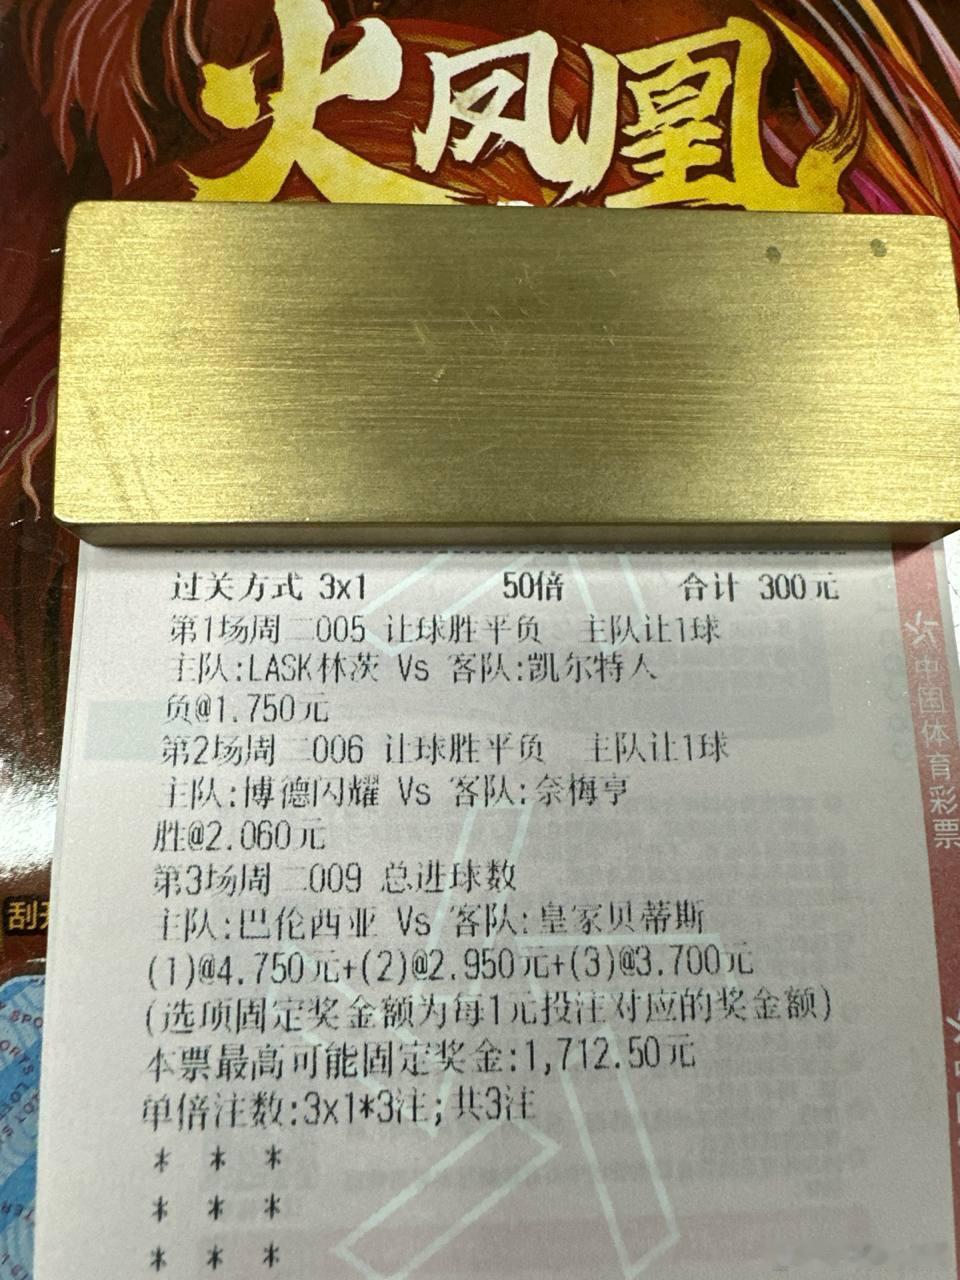 火凤凰
过关方式 3x1 50倍 合计 300元
第1场周二005 让球胜平负 主队让1球
主队:LASK林茨 Vs 客队:凯尔特人
负@1.750元
第2场周二006 让球胜平负 主队让1球
主队:博德闪耀 Vs 客队:奈梅亨
胜@2.060元
第3场周二009 总进球数
主队:巴伦西亚 Vs 客队:皇家贝蒂斯
(1)@4.750元+(2)@2.950元+(3)@3.700元
(选项固定奖金额为每1元投注对应的奖金额)
本票最高可能固定奖金:1,712.50元
单倍注数:3x1*3注;共3注
* * *
* * *
* * *
中国体育彩票
刮开